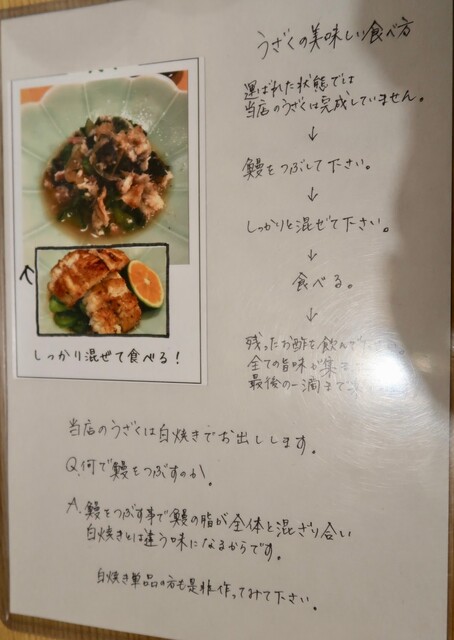 うざくの美味しい食べ方
運ばれた状態では
当店のうざくは完成していません。
↓
鰻をつぶして下さい。
↓
しっかりと混ぜて下さい。
↓
食べる。
↓
残ったお酢を飲んで
全ての旨味が集
最後の一滴まで
しっかり混ぜて食べる!
当店のうざくは白焼きでお出しします。
Q.何で鰻をつぶすのか。
A.鰻をつぶす事で鰻の脂が全体と混ざり合い
白焼きとは違う味になるからです。
白焼き単品の方も是非作ってみて下さい。